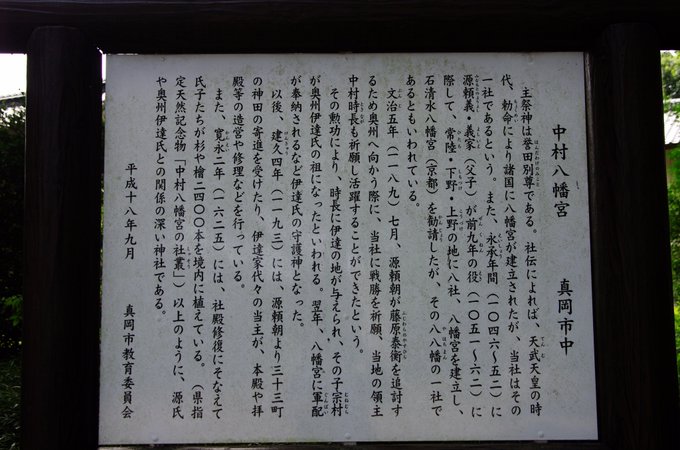 中村八幡宮　真岡市中
主祭神は誉田別尊である。社伝によれば、天武天皇の時
代、勅命により諸国に八幡宮が建立されたが、当社はその
一社であるという。また、永承年間（一〇四六～五二）に
源頼義・義家（父子）が前九年の役（一〇五一～六二）に
際して、常陸・下野・上野の地に八社、八幡宮を建立し、
石清水八幡宮（京都）を勧請したが、その八八幡の一社で
あるともいわれている。
文治五年（一一八九）七月、源頼朝が藤原泰衡を追討す
るため奥州へ向かう際に、当社に戦勝を祈願、当地の領主
中村時長も祈願し活躍することができたという。
その勲功により、時長に伊達の地が与えられ、その子宗村
が奥州伊達氏の祖になったといわれる。翌年、八幡宮に軍配
が奉納されるなど伊達氏の守護神となった。
以後、建久四年（一一九三）には、源頼朝より三十三町
の神田の寄進を受けたり、伊達家代々の当主が、本殿や拝
殿等の造営や修理などを行っている。
また、寛永二年（一六二五）には、社殿修復にそなえて
氏子たちが杉や檜二四〇〇本を境内に植えている。（県指
定天然記念物「中村八幡宮の社叢」）以上のように、源氏
や奥州伊達氏との関係の深い神社である。
平成十八年九月　真岡市教育委員会